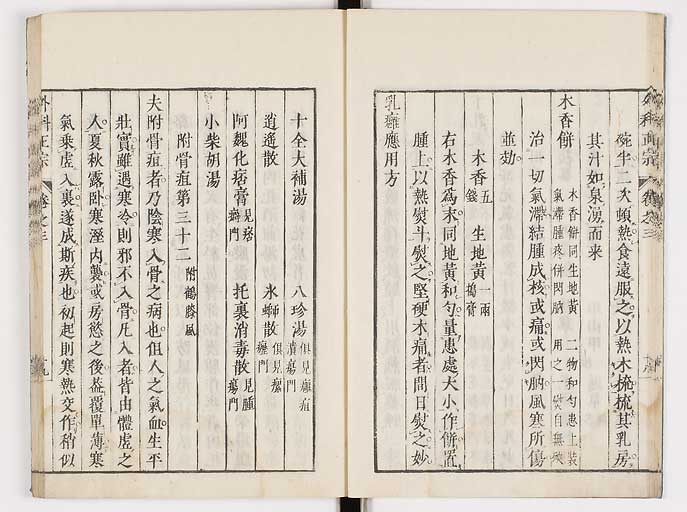 碗半二次頓熱食遠服之以熱木梳梳其乳房
其汁如泉湧而來
木香餅
木香餅同生地黃　二物和勻患上裝
氣滯腫疼併閃肭　用之熨自無殃
治一切氣滯結腫成核或痛或閃肭風寒所傷
並効
木香五錢　生地黃一兩搗膏
右木香爲末同地黃和勻量患處大小作餅置
腫上以熱熨斗熨之堅硬木痛者間日熨之妙
乳癰應用方
十全大補湯　八珍湯俱見癰疽潰瘍門
逍遙散　氷螄散俱見瘰癧門
阿魏化痞膏見痞癖門　托裏消毒散見腫瘍門
小柴胡湯
附骨疽第三十二附鶴膝風
夫附骨疽者乃陰寒入骨之病也但人之氣血生平
壯實雖遇寒冷則邪不入骨凡入者皆由體虛之
人夏秋露卧寒溼內襲或房慾之後葢覆單薄寒
氣乘虛入裏遂成斯疾也初起則寒熱交作稍似
外科正宗
卷之三
外科正宗
卷之三